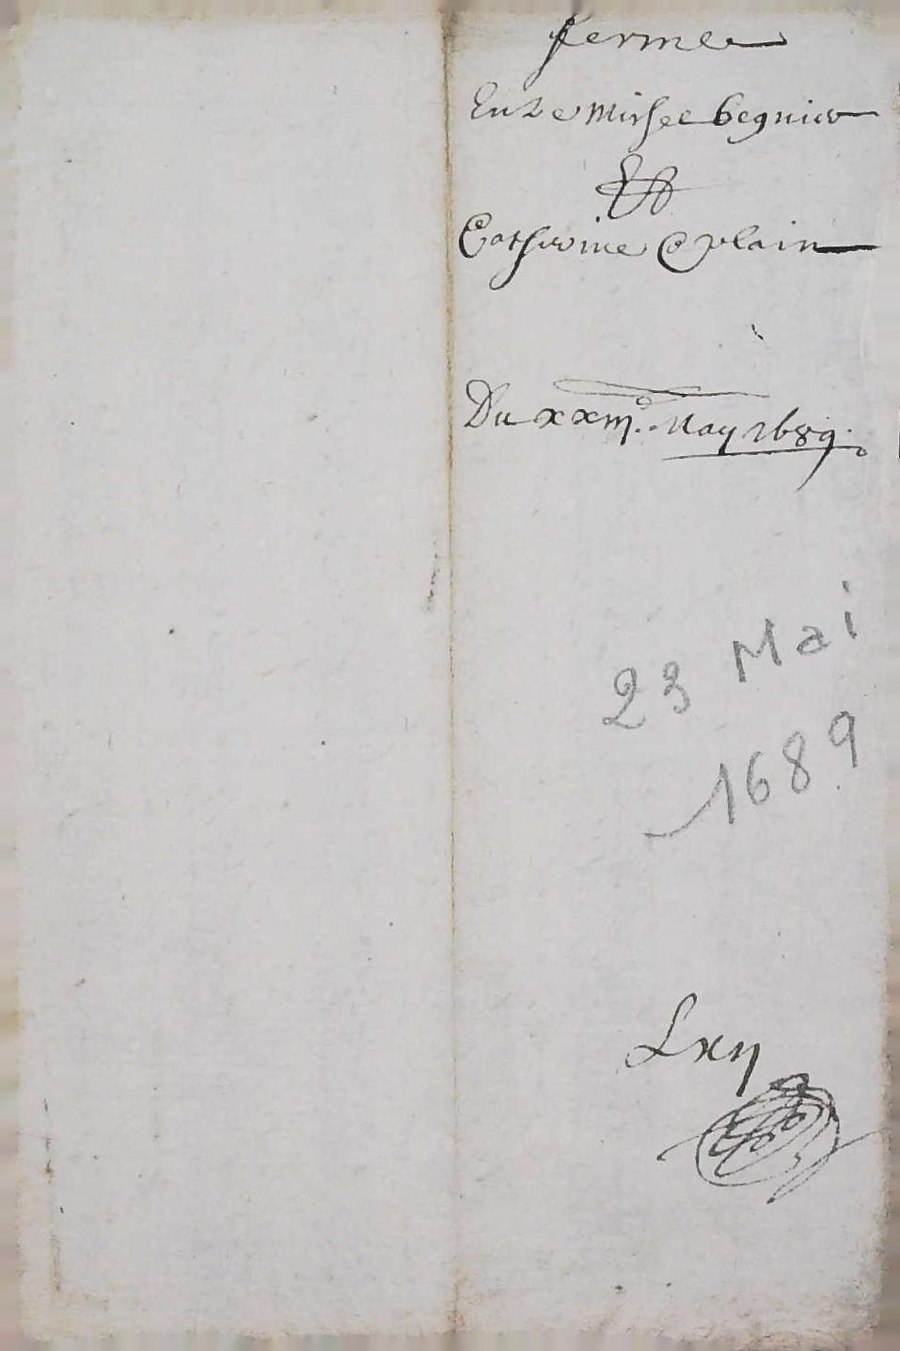 ferme
Entre Michel Begnier
Et
Catherine Coplain
Du xxiij.e May 1689.
23 Mai
1689
Lxij